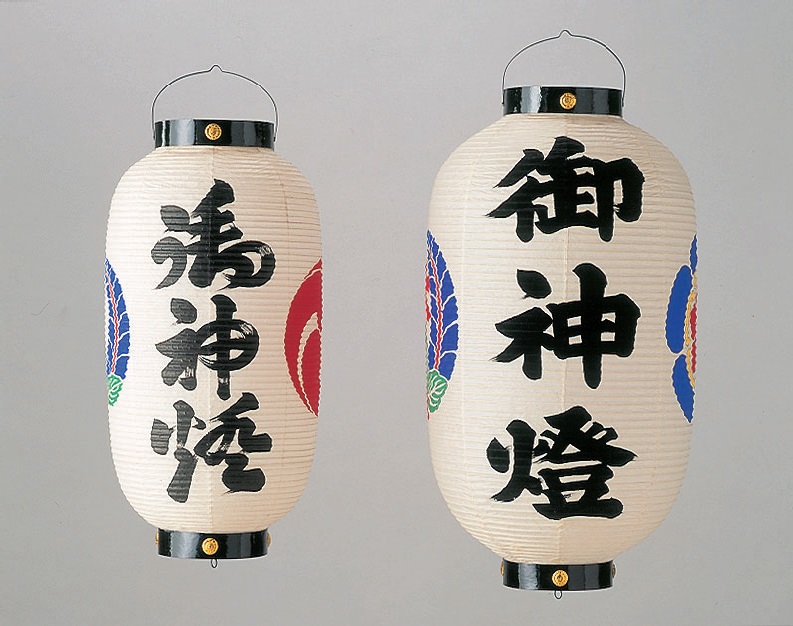 御神燈
御神燈